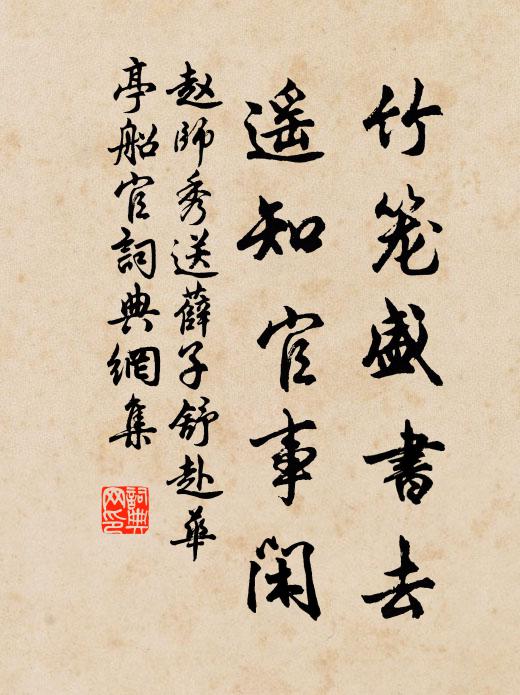 竹笼盛書去
遥知官事闲
赵師秀送薛子舒赴華
亭船官詞典網集
詞典
网印